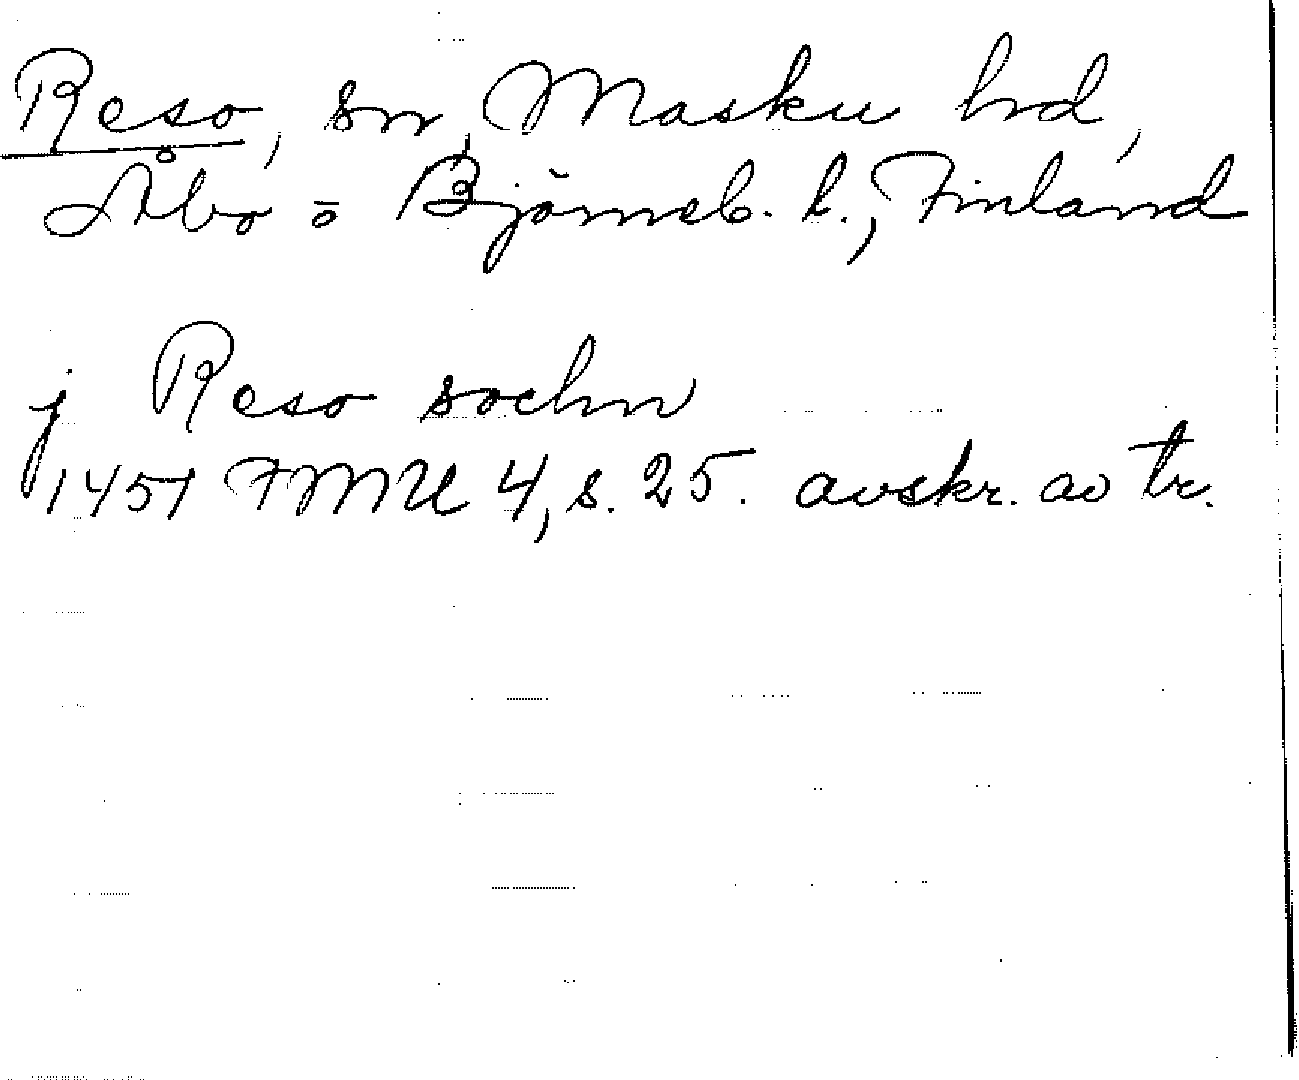 Reso, sn, Masku hd,
Åbo o Björneb. l., Finland
j Reso sochn
1451 FMU 4, s. 25. avskr. av tr.